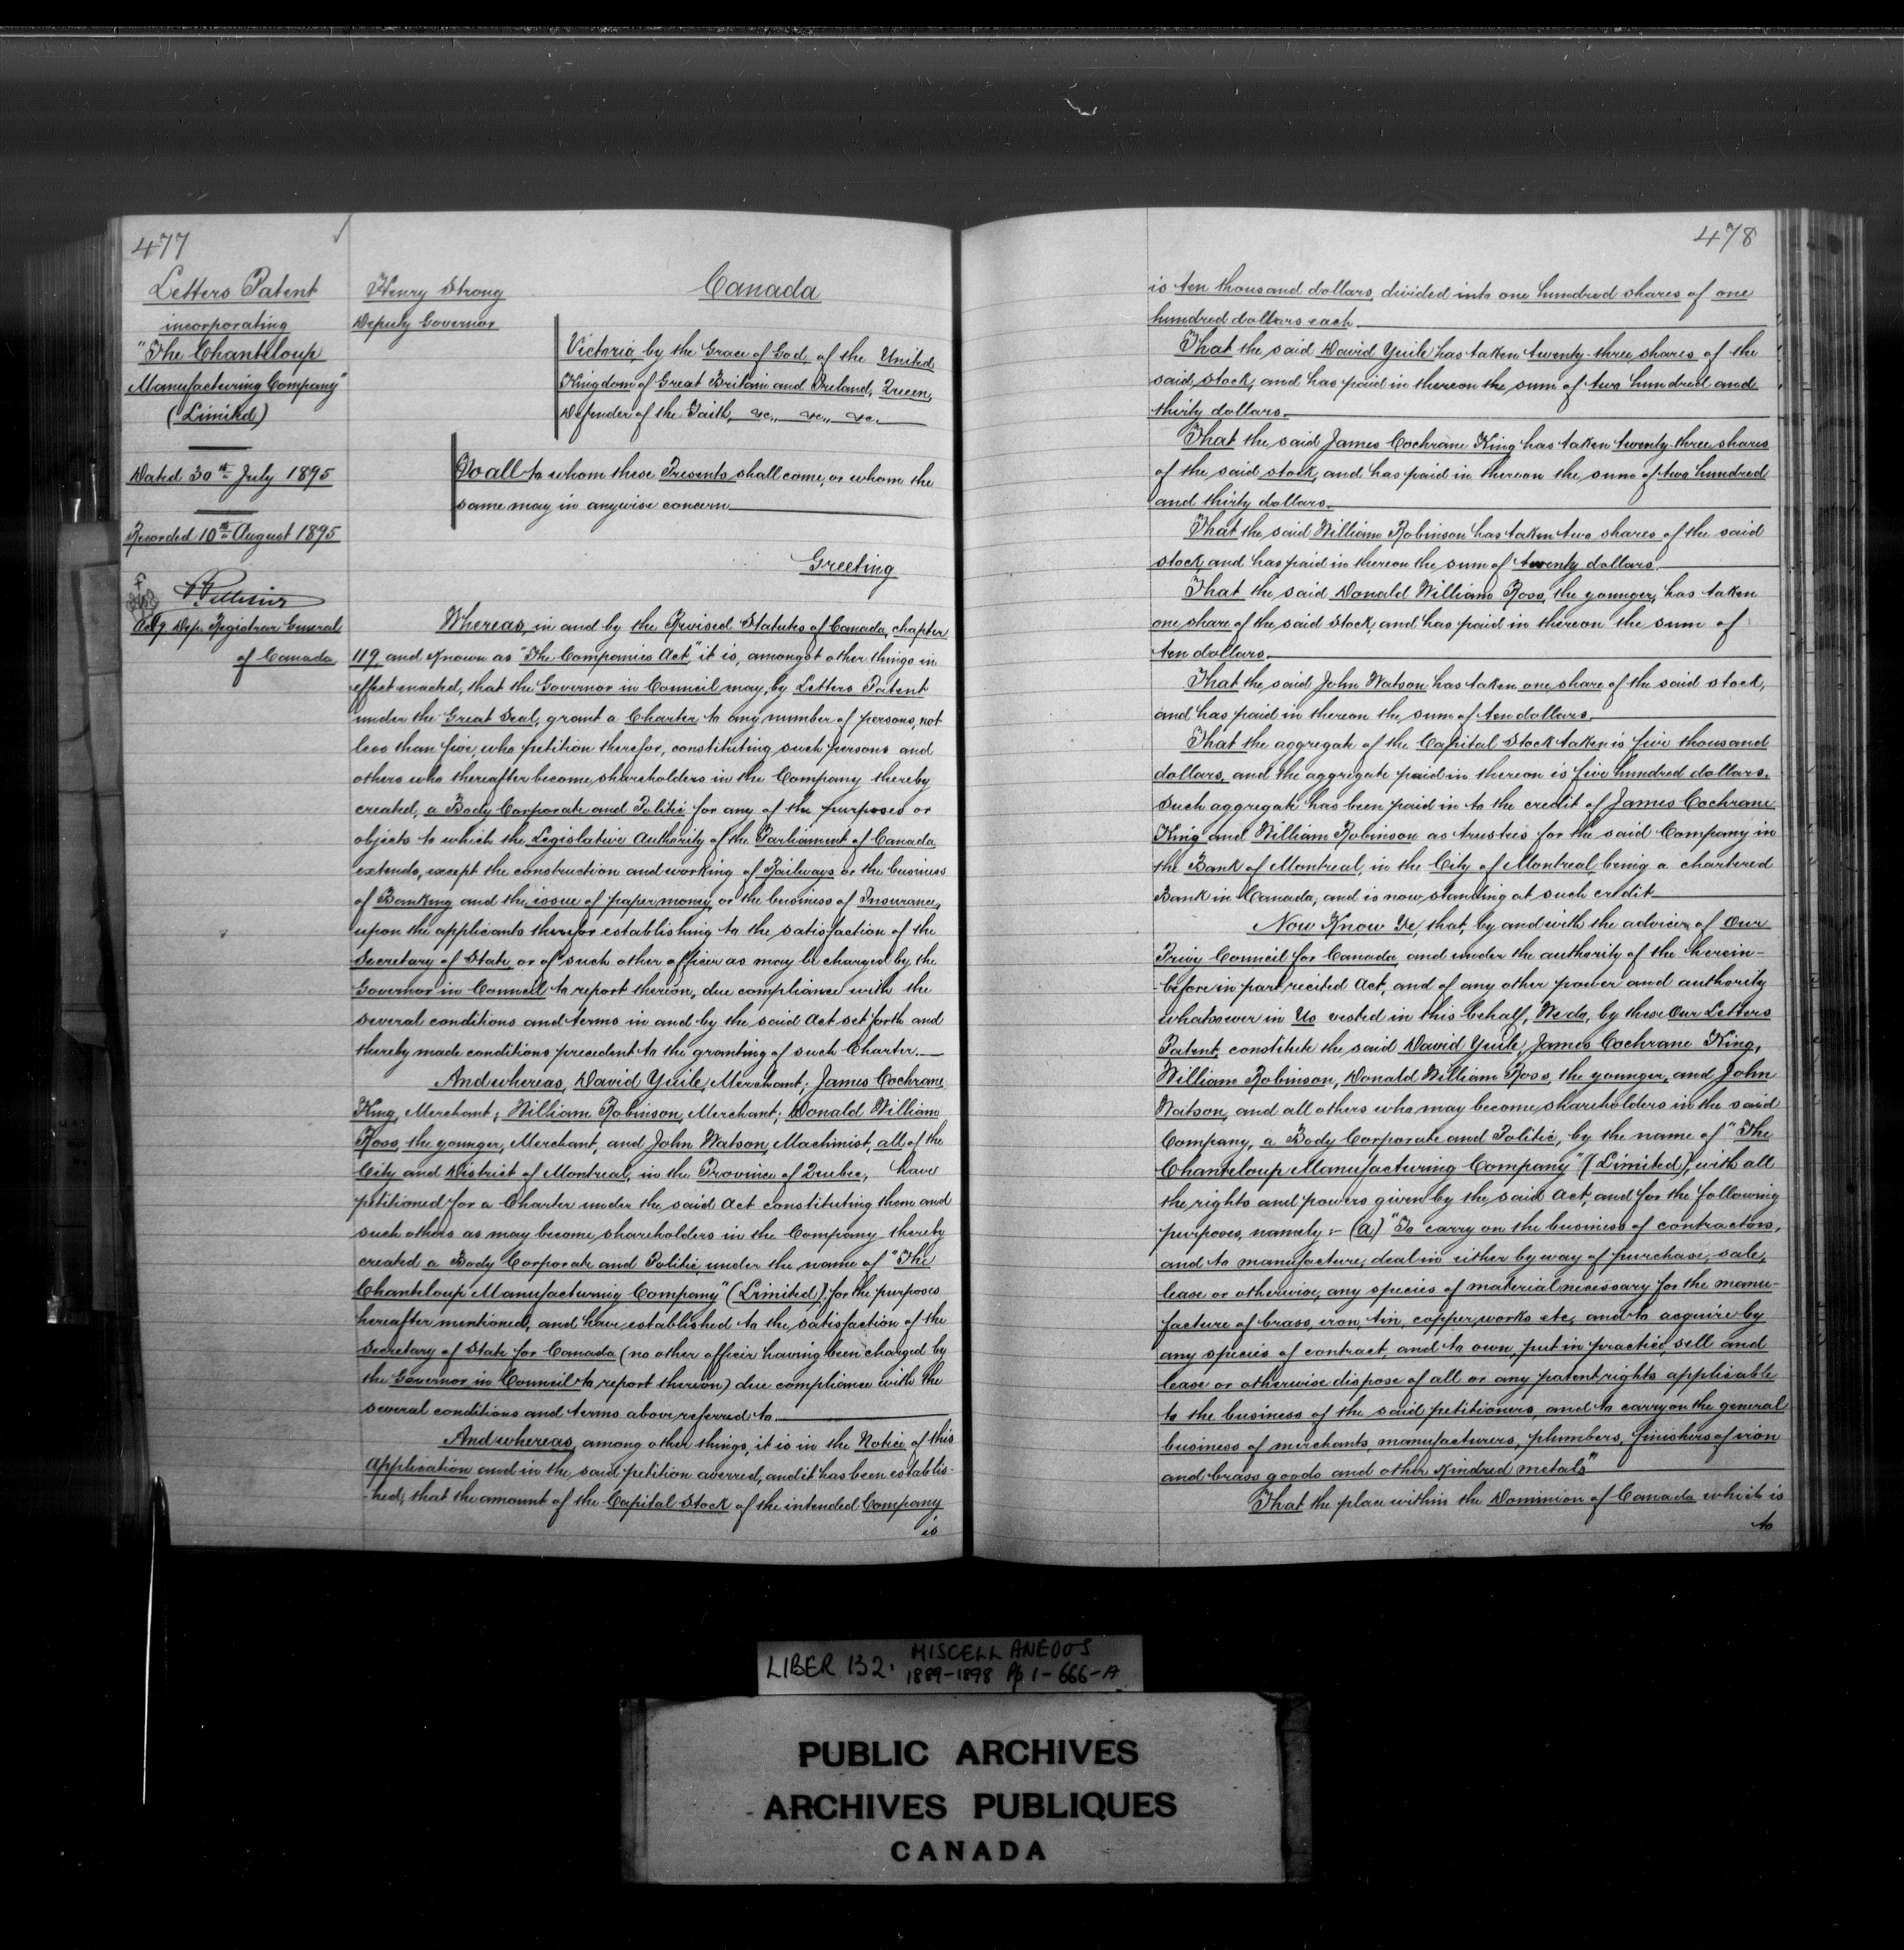 477
Letters Patent
incorporating
"The Chanteloup
Manufacturing Company"
(Limited)
Dated 30th July 1895
Recorded 10th August 1895
Actg Dep. Registrar General
of Canada
Henry Strong
Deputy Governor
Canada
Victoria, by the Grace of God, of the United
Kingdom of Great Britain and Ireland, Queen,
Defender of the Faith, &c., &c., &c.
To all to whom these Presents shall come, or whom the
same may in anywise concern
Greeting
Whereas, in and by the Revised Statutes of Canada, chapter
119, and known as "The Companies Act", it is, amongst other things in
effect enacted, that the Governor in Council may, by Letters Patent
under the Great Seal, grant a Charter to any number of persons, not
less than five, who petition therefor, constituting such persons and
others who thereafter become shareholders in the Company thereby
created, a Body Corporate and Politic for any of the purposes or
objects to which the Legislative Authority of the Parliament of Canada
extends, except the construction and working of Railways or the business
of Banking and the issue of paper money, or the business of Insurance,
upon the applicants therefor establishing to the satisfaction of the
Secretary of State, or of such other officer as may be charged by the
Governor in Council to report thereon, due compliance with the
several conditions and terms in and by the said Act set forth and
thereby made conditions precedent to the granting of such Charter.
And whereas, David Yuile, Merchant; James Cochrane
King, Merchant; William Robinson, Merchant; Donald William
Ross, the younger, Merchant, and John Watson, Machinist, all of the
City and District of Montreal, in the Province of Quebec, have
petitioned for a Charter under the said Act constituting them and
such others as may become shareholders in the Company thereby
created a Body Corporate and Politic, under the name of "The
Chanteloup Manufacturing Company" (Limited), for the purposes
hereafter mentioned, and have established to the satisfaction of the
Secretary of State for Canada (no other officer having been charged by
the Governor in Council to report thereon) due compliance with the
several conditions and terms above referred to
And whereas, among other things, it is in the Notice of this
Application and in the said petition averred, and it has been establis-
-hed, that the amount of the Capital Stock of the intended Company
is
478
is ten thousand dollars, divided into one hundred shares of one
hundred dollars each
That the said David Yuile has taken twenty-three shares of the
said stock, and has paid in thereon the sum of two hundred and
thirty dollars.
That the said James Cochrane King has taken twenty-three shares
of the said stock, and has paid in thereon the sum of two hundred
and thirty dollars.
That the said William Robinson has taken two shares of the said
stock, and has paid in thereon the sum of twenty dollars.
That the said Donald William Ross, the younger, has taken
one share of the said stock, and has paid in thereon the sum of
ten dollars.
That the said John Watson has taken one share of the said stock,
and has paid in thereon the sum of ten dollars.
That the aggregate of the Capital Stock taken is five thousand
dollars, and the aggregate paid in thereon is five hundred dollars.
Such aggregate has been paid in to the credit of James Cochrane
King and William Robinson as trustees for the said Company in
the Bank of Montreal, in the City of Montreal, being a chartered
Bank in Canada, and is now standing at such credit
Now Know Ye, that, by and with the advice of Our
Privy Council for Canada, and under the authority of the herein-
-before in part recited Act, and of any other power and authority
whatsoever in Us vested in this behalf, We do, by these Our Letters
Patent, constitute the said David Yuile, James Cochrane King,
William Robinson, Donald William Ross, the younger, and John
Watson, and all others who may become shareholders in the said
Company, a Body Corporate and Politic, by the name of "The
Chanteloup Manufacturing Company" (Limited), with all
the rights and powers given by the said Act, and for the following
purposes, namely:- (a) "To carry on the business of contractors,
and to manufacture, deal in either by way of purchase, sale,
lease or otherwise, any species of material necessary for the manu-
facture of brass, iron, tin, copper, works etc, and to acquire by
any species of contract, and to own, put in practice, sell and
lease or otherwise dispose of all or any patent rights applicable
to the business of the said petitioners, and to carry on the general
business of merchants, manufacturers, plumbers, finishers of iron
and brass goods and other kindred metals"
That the place within the Dominion of Canada which is
to
LIBER 132. MISCELLANEOUS
1889-1898 Pp 1-666-A
PUBLIC ARCHIVES
ARCHIVES PUBLIQUES
CANADA